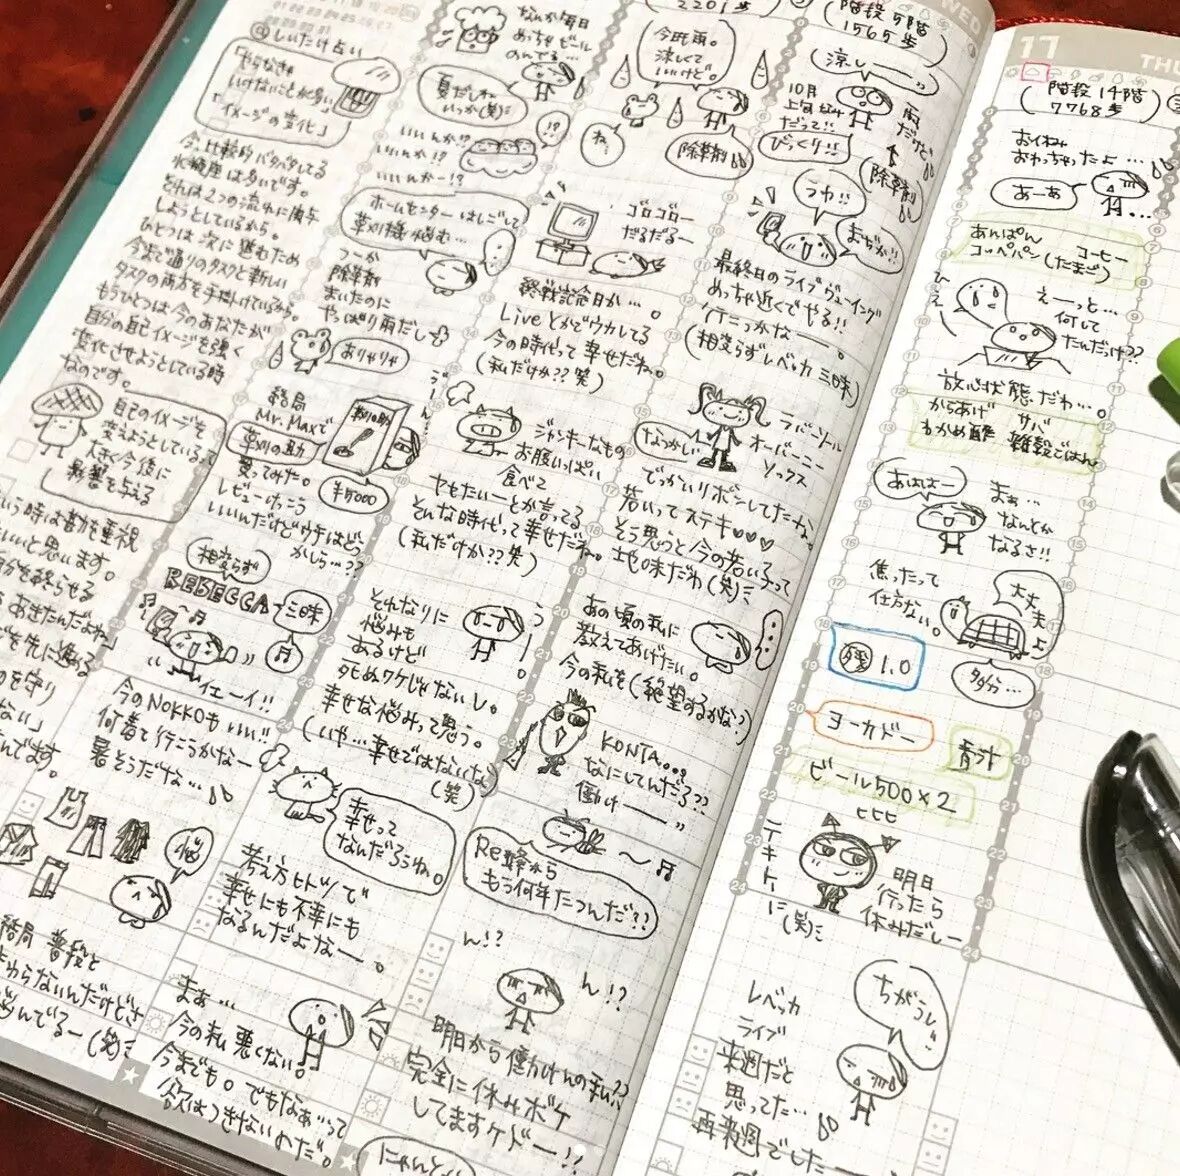 しいたけ占い
「やらなきゃ
いけないことが多い」
「イメージの変化」
今、比較的バタバタしてる
水瓶座は多いです。
それは2つの流れに関与
しようとしているから。
ひとつは次に進むため
今まで通りのタスクと新しい
タスクの両方を手掛けているから。
もうひとつは今のあなたが
自分の自己イメージを強く
変化させようとしている時
なのです。
自己のイメージを
変えようとしている
大きく今後に
影響を与える
いう時は勘を重視
いいと思います。
を終らせる
あきたんだよね
を先に進める
を守り
ない」
んでます。
悩
結局 普段と
変わらないんだけどさ
悩んでるー(笑)
なんか毎日
めっちゃビール
のんでる…
夏だしね
いっか(笑)
いいんか!?
いいんか!?
いいんかー!?
!?
ホームセンターはしごして
草刈機悩む…
つーか
除草剤
まいたのに
やっぱり雨だし
ありゃりゃ
結局
Mr.Maxで
草刈の助
買ってみた。
レビューけっこう
いいんだけどウチはどう
かしら…??
¥5000
相変らず
REBECCA
三昧
イエーイ!!
今のNOKKOもいい!!
何着て行こうかなー
暑そうだな…
2201歩
今日も雨。
涼しくて
いいけど。
ね。
除草剤
ゴロゴロー
だるだるー
終戦記念日か…。
Liveとかでウカレてる
今の時代って幸せだね。
(私だけか??笑)
ジャンキーなもの
お腹いっぱい
食べて
ヤセたいーとか言ってる
そんな時代って幸せだね。
(私だけか??笑)
それなりに
悩みも
あるけど
死ぬワケじゃないし。
幸せな悩みって思う。
(いや…幸せではないな)
(笑)
うーん。
幸せって
なんだろうね。
考え方ヒトツで
幸せにも不幸にも
なるんだよなー。
まぁ…
今の私悪くない。
今までも。でもなぁ〜って
欲はつきないわだ。
WED
(階段 5階
1565歩)
涼しーーっ
10月
上旬なみ
だって!!
雨
だけど
びっくり!!
除草剤
うわ!!
まぢか!!
最終日のライブヴューイング
めっちゃ近くでやる!!
行こっかなー。
(相変らずレベッカ三昧)
なつかしい
ラバーソール
オーバーニー
ソックス
でっかいリボンしてたな。
若いってステキ♡♡♡
そう思うと今の若い子って
地味だわ(笑)
あの頃の私に
教えてあげたい。
今の私を(絶望するかな?)
KONTA…。
なにしてんだろ??
働けーー
Re:蜂から
もう何年たつんだ??
ん!?
ん!?
明日から働かけんの私??
完全に休みボケ
してますケドー!!
にゃんと
17
THU
(階段14階
7768歩)
お休み
おわっちゃったよ…
あーあ
あんぱん
コッペパン(たまご)
コーヒー
ひえー
えーっと…
何して
たんだっけ??
放心状態だわ…。
からあげ
サバ
わかめ酢
雑穀ごはん
あはは…
まぁ…
なんとか
なるさ!!
焦ったって
仕方ない。
大丈
夫
よ
多分…
残 1.0
ヨーカドー
青汁
ビール500×2
ヒヒヒ
テキトー
に(笑)
明日
行ったら
休みだしー
ちがうし
レベッカ
ライブ
来週だと
思ってた…
再来週でしたー